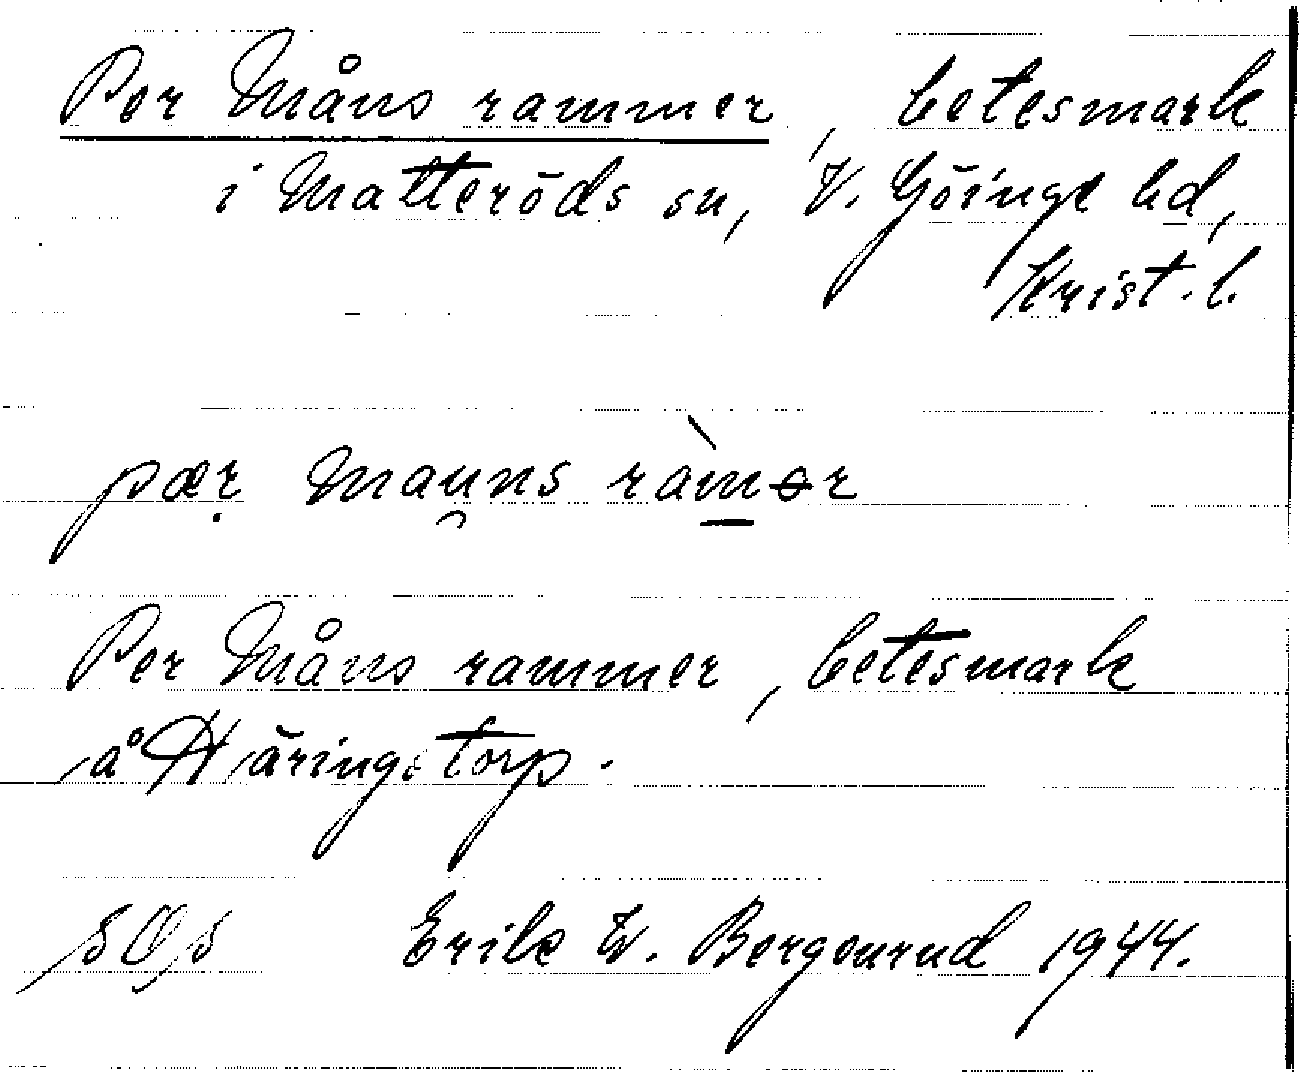 Per Måns rammer, betesmark
i Matteröds sn, V. Göinge hd,
Krist. l.
pær mau̯ns ràmər
Per Måns rammer, betesmark
å Häringstorp.
Erik W. Bergenrud 1944.